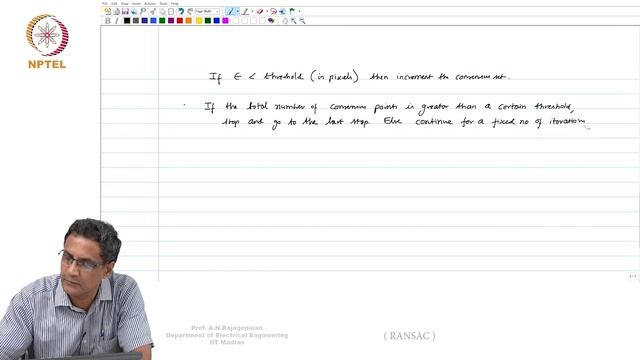 NPTEL
If ∈ < threshold (in pixels) then increment the consensus set.
If the total number of consensus points is greater than a certain threshold,
stop and go to the last step. Else continue for a fixed no of iterations
Prof. A.N.Rajagopalan
Department of Electrical Engineering
IIT Madras
( RANSAC )